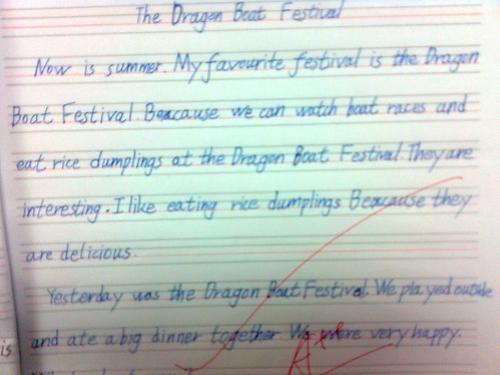 The Dragon Boat Festival
Now is summer. My favourite festival is the Dragon
Boat Festival. Beacause we can watch boat races and
eat rice dumplings at the Dragon Boat Festival. They are
interesting. I like eating rice dumplings Beacause they
are delicious.
Yesterday was the Dragon Boat Festival. We played outside
and ate a big dinner together. We were very happy.
is